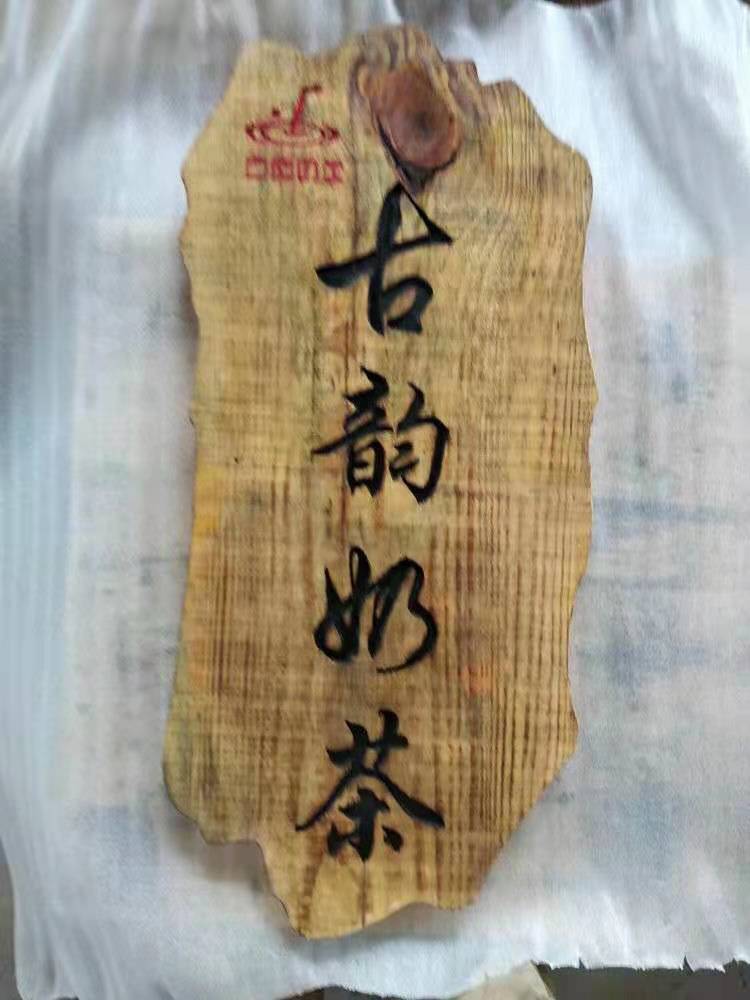 古韵奶茶